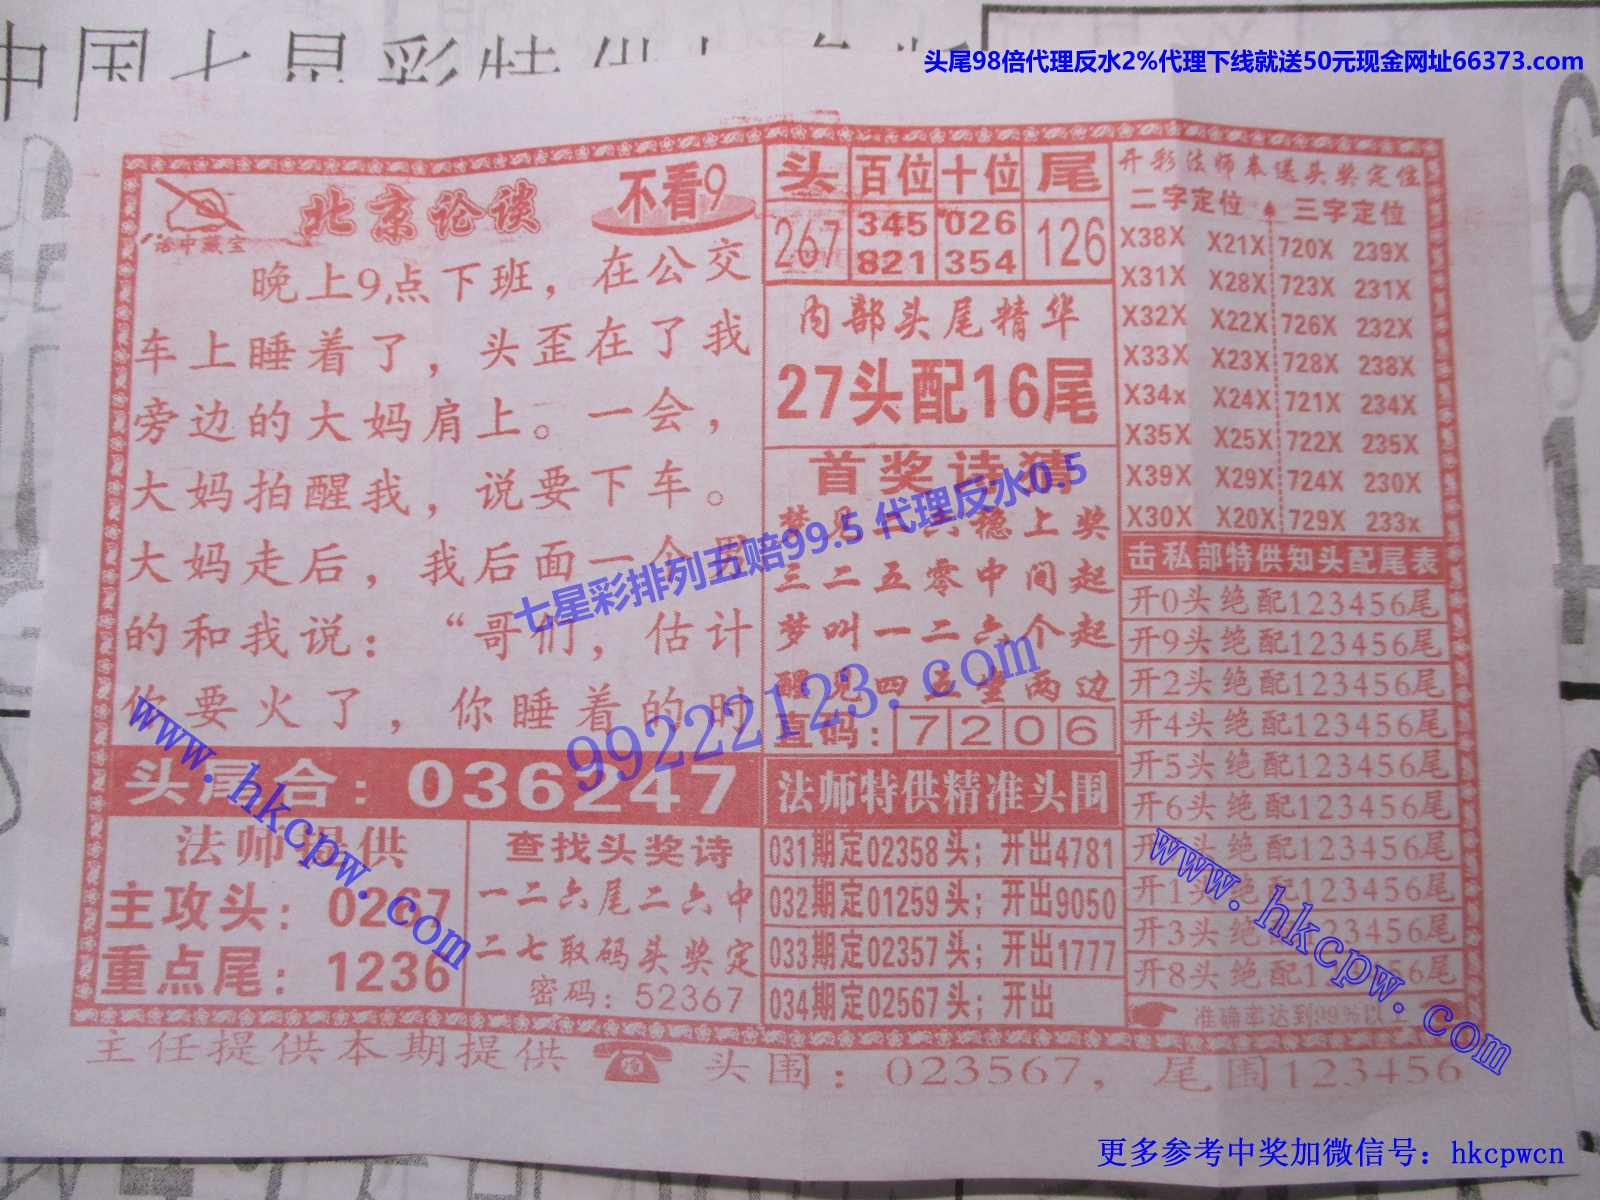 头尾98倍代理反水2%代理下线就送50元现金网址66373.com
中国七星彩特供
话中藏宝
北京论谈
不看9
晚上9点下班，在公交
车上睡着了，头歪在了我
旁边的大妈肩上。一会，
大妈拍醒我，说要下车。
大妈走后，我后面一个男
的和我说：“哥们，估计
你要火了，你睡着的时
头尾合：036247
法师提供
主攻头：0267
重点尾：1236
查找头奖诗
一二六尾二六中
二七取码头奖定
密码：52367
头 百位 十位 尾
267 345 026 126
821 354
内部头尾精华
27头配16尾
首奖诗猜
梦见二六稳上奖
三二五零中间起
梦叫一二六个起
醒见四五坐两边
直码：7206
法师特供精准头围
031期定02358头；开出4781
032期定01259头；开出9050
033期定02357头；开出1777
034期定02567头；开出
开彩法师奉送头奖定位
二字定位 三字定位
X38X X21X 720X 239X
X31X X28X 723X 231X
X32X X22X 726X 232X
X33X X23X 728X 238X
X34x X24X 721X 234X
X35X X25X 722X 235X
X39X X29X 724X 230X
X30X X20X 729X 233x
击私部特供知头配尾表
开0头绝配123456尾
开9头绝配123456尾
开2头绝配123456尾
开4头绝配123456尾
开5头绝配123456尾
开6头绝配123456尾
开头绝配123456尾
开1头绝配123456尾
开3头绝配123456尾
开8头绝配123456尾
准确率达到99%以上
主任提供本期提供 头围：023567，尾围123456
七星彩排列五赔99.5 代理反水0.5
99222123.com
www.hkcpw.com
www.hkcpw.com
更多参考中奖加微信号：hkcpwcn